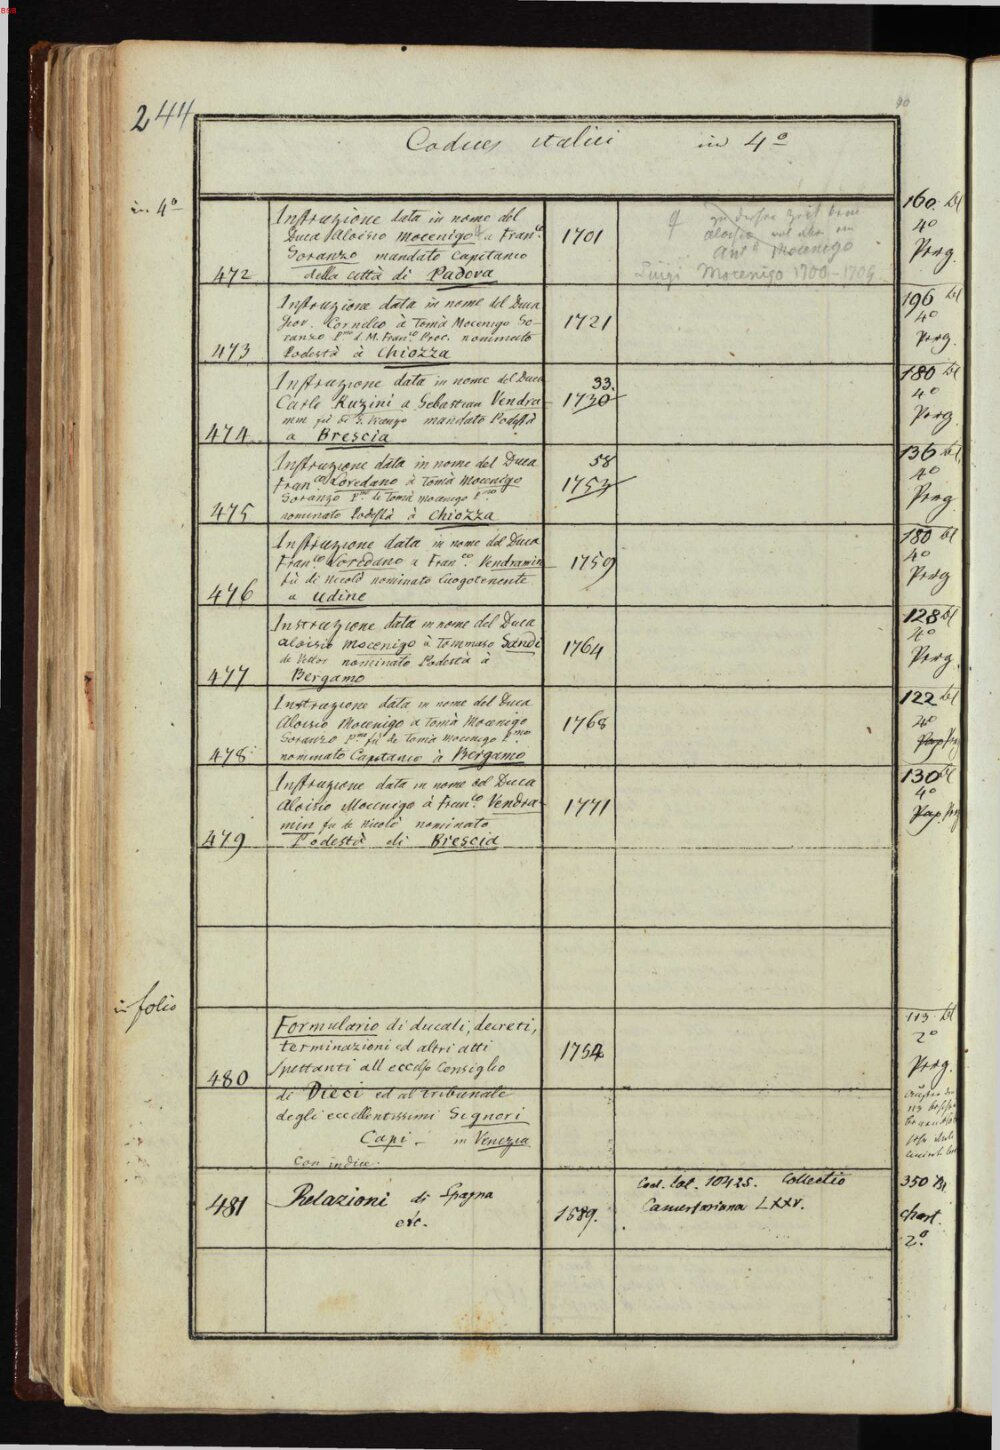 BSB
244
90
Codices italici in 4º
in 4º
472
Instruzione data in nome del
Duca Aloisio Mocenigo a Franco.
Soranzo mandato Capitanio
della città di Padova
1701
zu dieser Zeit kein
Aloisio
Mocenigo
Luigi Mocenigo 1700-1709
160 Bl
4º
Perg.
473
Instruzione data in nome del Duca
Giov. Cornelio à Tomà Mocenigo So-
ranzo Pmo d. M. Franco. Proc. nominato
Podestà à Chiozza
1721
196 Bl
4º
Perg.
474
Instruzione data in nome del Duca
Carlo Ruzini a Sebastian Vendra-
min fù di mandato Podestà
a Brescia
33.
1730
180 Bl
4º
Perg
475
Instruzione data in nome del Duca
Franco Loredano à Tomà Mocenigo
Soranzo Pmo. de Tomà Mocenigo Pmo
nominato Podestà à Chiozza
58
1752
136 Bl.
4º
Perg
476
Instruzione data in nome del Duca
Franco Loredano a Franco. Vendramin
fù di Nicolò nominato Luogotenente
a Udine
1759
180 Bl
4º
Perg
477
Instruzione data in nome del Duca
Aloisio Mocenigo à Tommaso Sandi
de Vettor nominato Podestà à
Bergamo
1764
128 Bl
4º
Perg.
478
Instruzione data in nome del Duca
Aloisio Mocenigo a Tomà Mocenigo
Soranzo Pmo fù de Tomà Mocenigo Pmo
nominato Capitanio à Bergamo
1768
122 Bl
4º
Pap Prg
479
Instruzione data in nome del Duca
Aloisio Mocenigo à Franco Vendra-
min fu de Nicolò nominato
Podestà di Brescia
1771
130 Bl
4º
Pap. Prg
in folio
480
Formulario di ducali, decreti,
terminazioni ed altri atti
spettanti all eccelso Consiglio
di Dieci ed al tribunale
degli eccellentissimi Signori
Capi - in Venezia
con indice.
1754
113 Bl
2º
Perg.
481
Relazioni di Spagna
etc.
1589.
Cod. lat. 10425. Collectio
Camerariana LXXV.
350 Bl
chart.
2º.